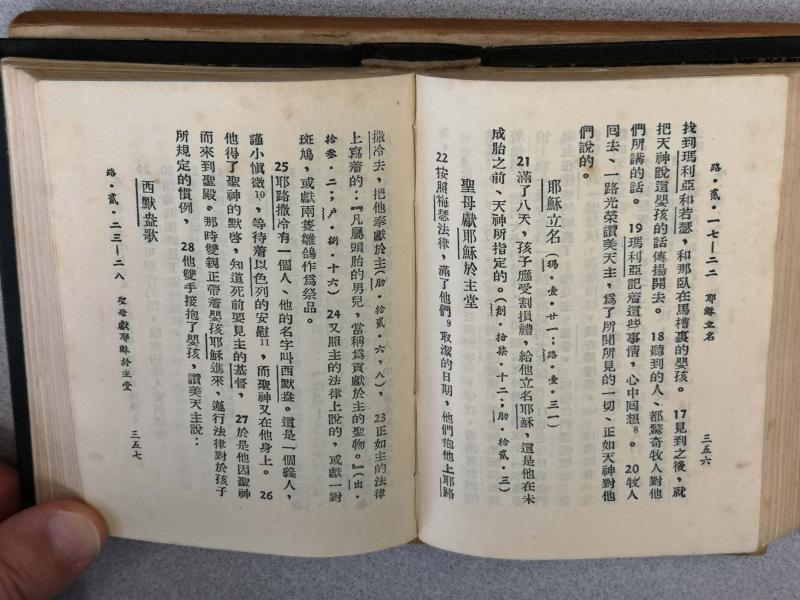 路・貳・一七—二二　耶穌立名　三五六
找到瑪利亞和若瑟，和那臥在馬槽裏的嬰孩。17見到之後，就
把天神說這嬰孩的話傳揚開去。18聽到的人、都驚奇牧人對他
們所講的話。19瑪利亞記着這些事情，心中回想8。20牧人
回去、一路光榮讚美天主，爲了所聞所見的一切、正如天神對他
們說的。
耶穌立名（瑪・壹・廿一；路・壹・三一）
21滿了八天，孩子應受割損禮，給他立名耶穌，這是他在未
成胎之前、天神所指定的。（創・拾柒・十二；肋・拾貳・三）
聖母獻耶穌於主堂
22按照梅瑟法律，滿了他們9取潔的日期，他們抱他上耶路
撒冷去，把他奉獻於主（肋・拾貳・六，八），23正如主的法律
上寫着的：『凡屬頭胎的男兒，當稱爲貢獻於主的聖物。』（出・
拾叁・二；戶・捌・十六）24又照主的法律上說的，或獻一對
斑鳩，或獻兩隻雛鴿作爲祭品。
25耶路撒冷有一個人、他的名字叫西默盎。這是一個義人，
謹小愼微10，等待着以色列的安慰11，而聖神又在他身上。26
他得了聖神的默啓，知道死前要見主的基督，27於是他因聖神
而來到聖殿。那時雙親正帶着嬰孩耶穌進來，遵行法律對於孩子
所規定的慣例，28他雙手接抱了嬰孩，讚美天主說：
西默盎歌
路・貳・二三—二八　聖母獻耶穌於主堂　三五七